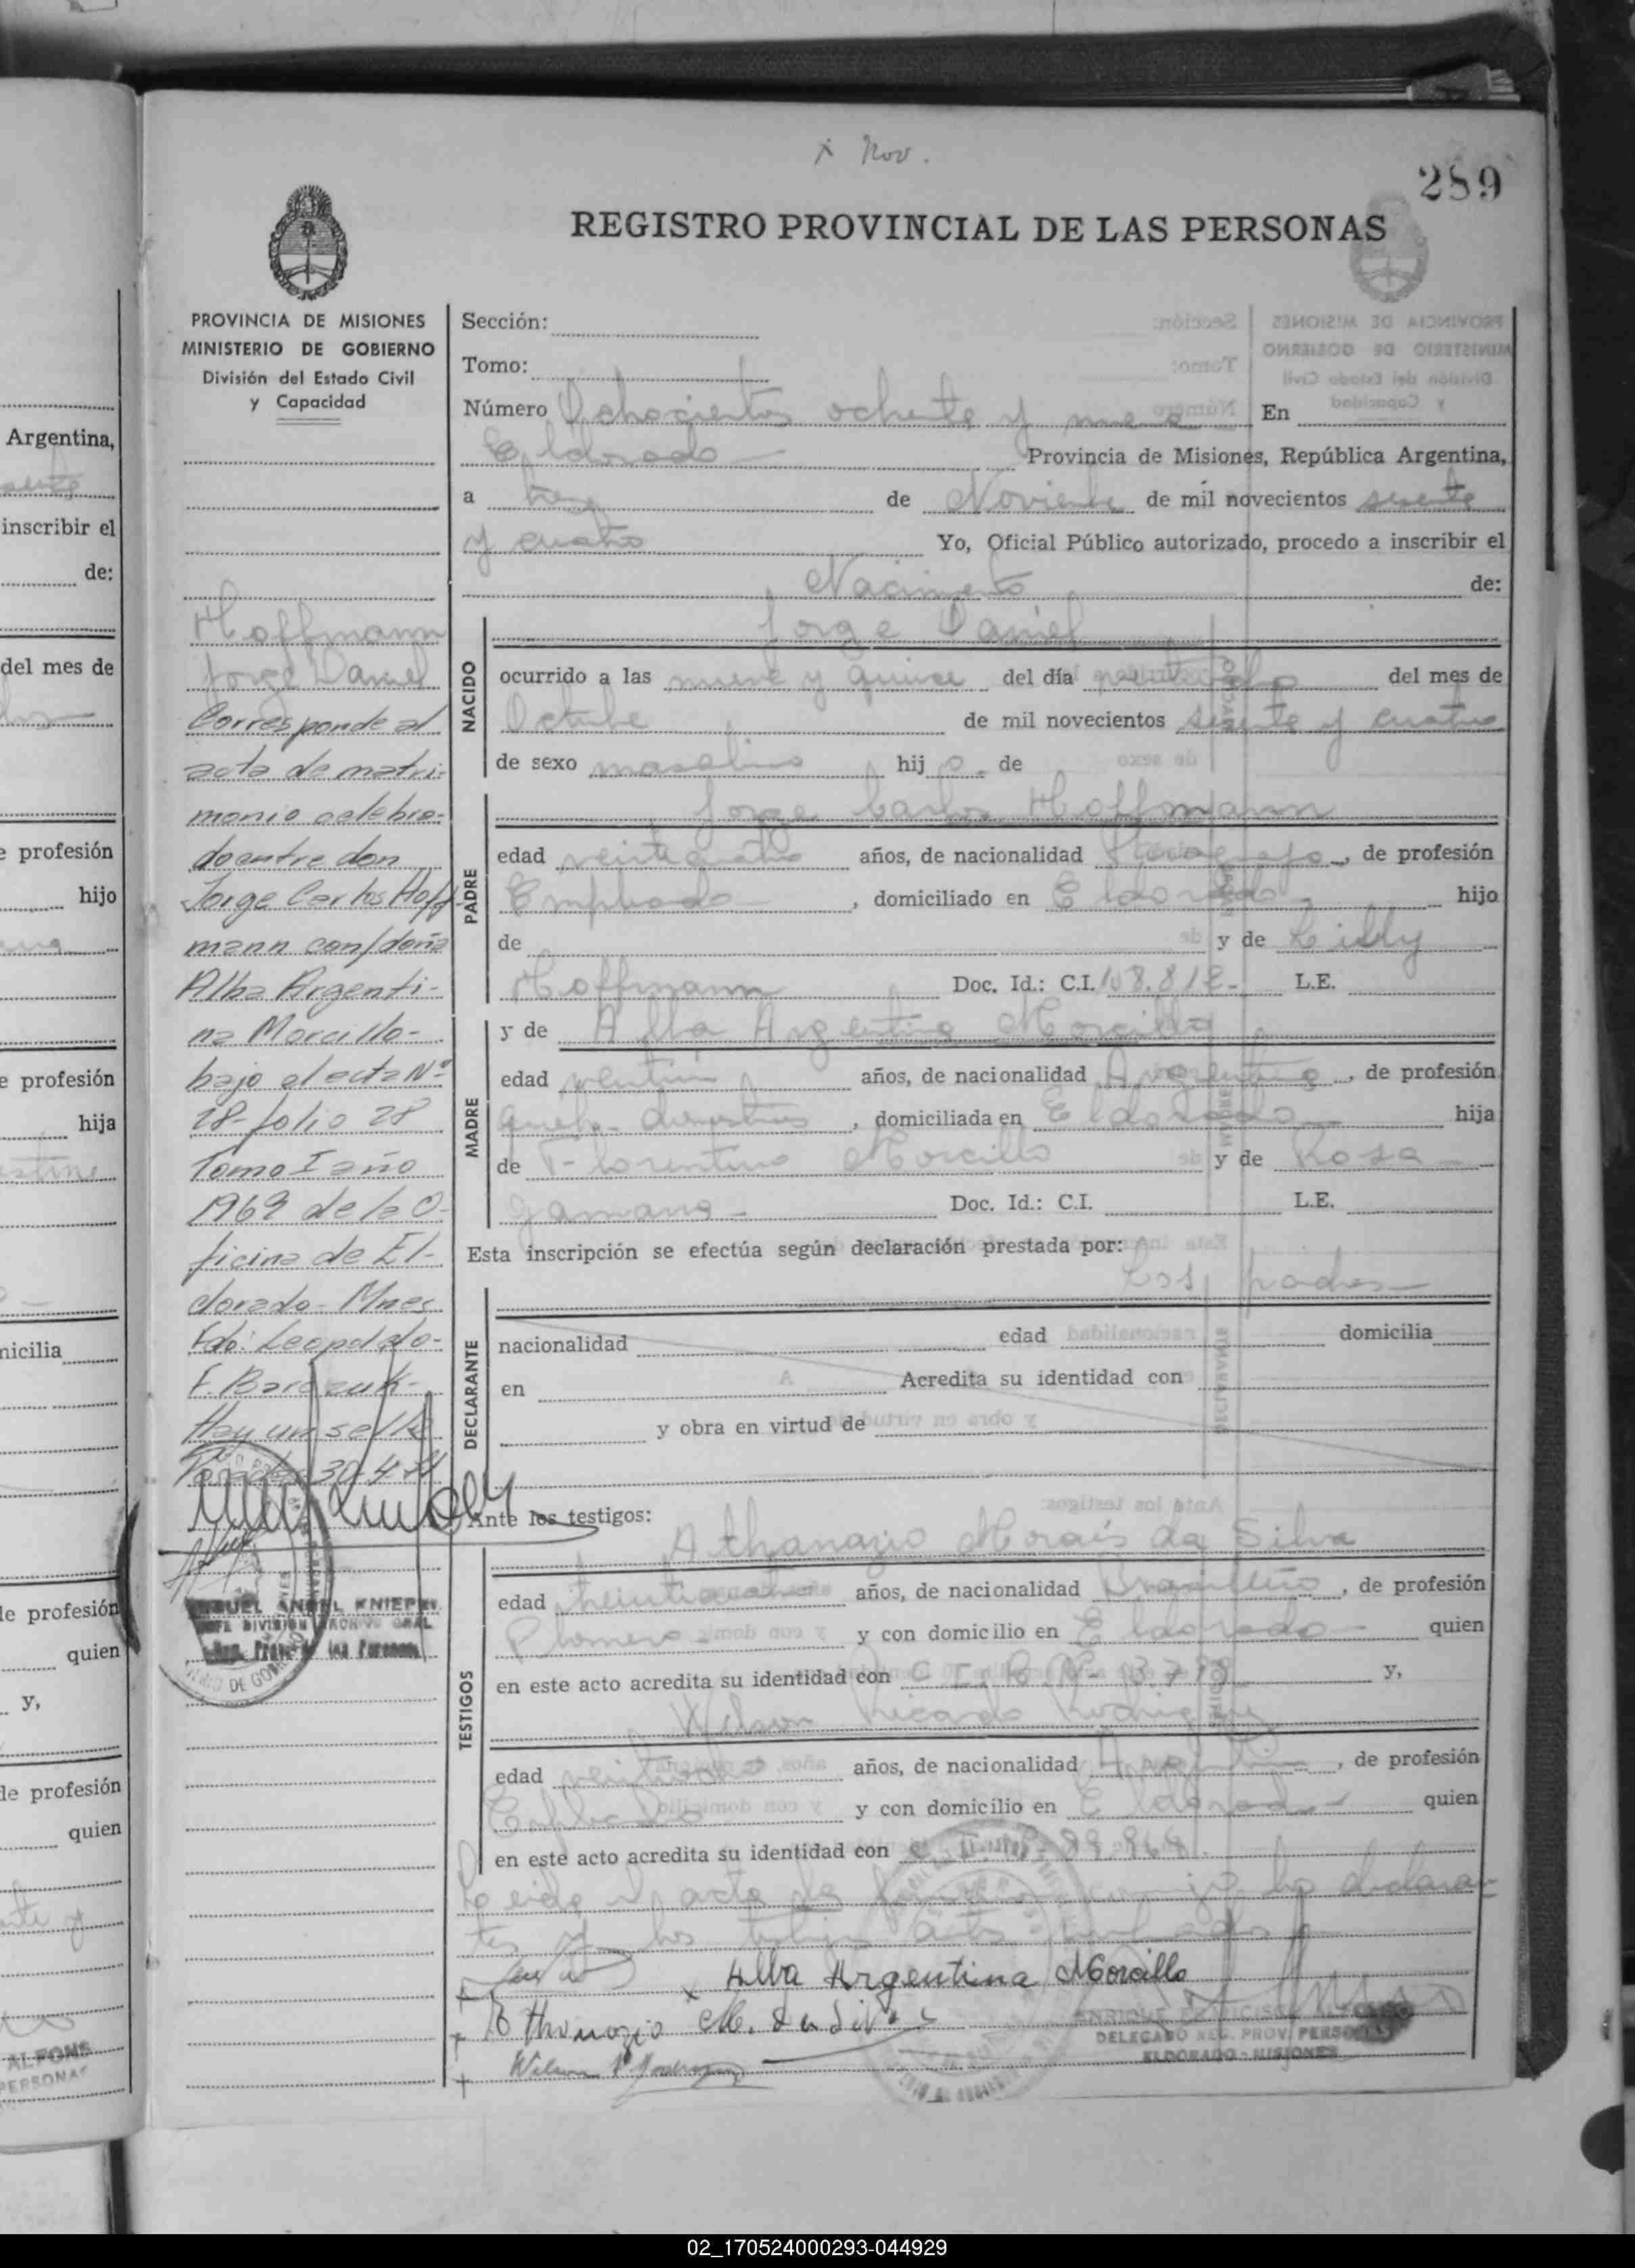 x Nov.
289
REGISTRO PROVINCIAL DE LAS PERSONAS
PROVINCIA DE MISIONES
MINISTERIO DE GOBIERNO
División del Estado Civil
y Capacidad
Hoffmann
Jorge Daniel
Corresponde al
acta de matri-
monio celebra-
do entre don
Jorge Carlos Hoff-
mann con/doña
Alba Argenti-
na Morcillo-
bajo el acta Nº
28- folio 28
Tomo I año
1969 de la O-
ficina de El-
dorado- Mnes
Fdo: Leopoldo-
F.
Hay un sello
30-4
MIGUEL ANGEL KNIEPP
JEFE DIVISION ARCHIVO GRAL
Reg. Prov. de las Personas
Sección:
Tomo:
Número Ochocientos ochenta y nueve En
Eldorado Provincia de Misiones, República Argentina,
a trece de Noviembre de mil novecientos sesenta
y cuatro Yo, Oficial Público autorizado, procedo a inscribir el
Nacimiento de:
NACIDO
Jorge Daniel
ocurrido a las nueve y quince del día del mes de
Octubre de mil novecientos sesenta y cuatro
de sexo masculino hij o. de
PADRE
Jorge Carlos Hoffmann
edad veinticuatro años, de nacionalidad , de profesión
Empleado , domiciliado en Eldorado hijo
de y de Lilly
Hoffmann Doc. Id.: C.I. 108.812- L.E.
MADRE
y de Alba Argentina Morcillo
edad años, de nacionalidad Argentina , de profesión
domiciliada en Eldorado hija
de Florentino Morcillo y de Rosa
Doc. Id.: C.I. L.E.
Esta inscripción se efectúa según declaración prestada por:
Los padres
DECLARANTE
nacionalidad edad domicilia
en Acredita su identidad con
y obra en virtud de
Ante los testigos:
TESTIGOS
Athanazio Morais da Silva
edad años, de nacionalidad Brasileño , de profesión
Plomero y con domicilio en Eldorado quien
en este acto acredita su identidad con y,
Wilson Ricardo Rodriguez
edad años, de nacionalidad Argentino , de profesión
Empleado y con domicilio en Eldorado quien
en este acto acredita su identidad con
Leida el acta la firman conmigo los declaran
tes y los testigos
x Alba Argentina Morcillo
Athanazio M. da Silva
Wilson R. Rodriguez
ENRIQUE FRANCISCO ALFONSO
DELEGADO REG. PROV. PERSONAS
ELDORADO - MISIONES
Argentina,
inscribir el
de:
del mes de
e profesión
hijo
e profesión
hija
micilia
de profesión
quien
y,
de profesión
quien
ALFONS
PERSONAS
02_170524000293-044929